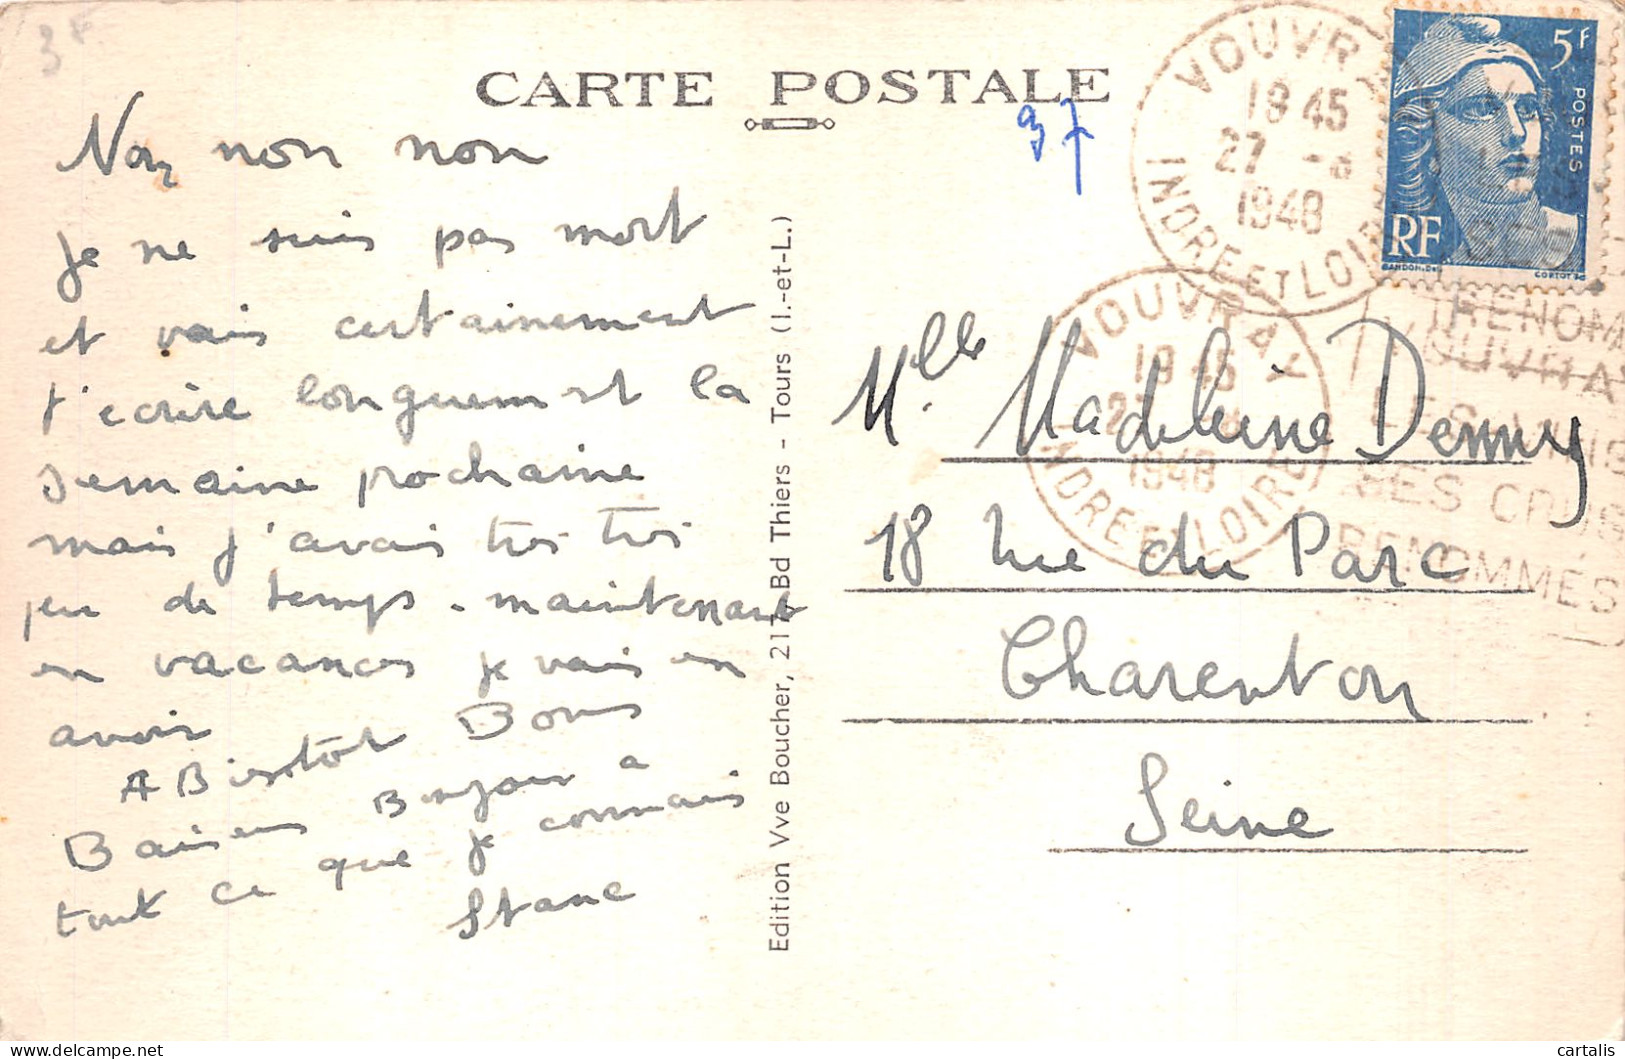 3F
CARTE POSTALE
37
Non non non
je ne suis pas mort
et vais certainement
t'ecrire longuement la
semaine prochaine
mais j'avais très très
peu de temps. maintenant
en vacances je vais en
avoir
A Bientôt Bons
Baisers Bonjour a
tout ce que je connais
Stane
Edition Vve Boucher, 217 Bd Thiers - Tours (I.-et-L.)
VOUVRAY
19 45
27 -
1948
INDRE ET LOIRE
5F
POSTES
RF
GANDON.Del
CORTOT Sc
VOUVRAY
19 45
27
1948
INDRE ET LOIRE
RENOMM
VOUVRAY
LES VINS
SES CRUS
RENOMMÉS
Melle Madeleine Denny
18 rue du Parc
Charenton
Seine
cartalis